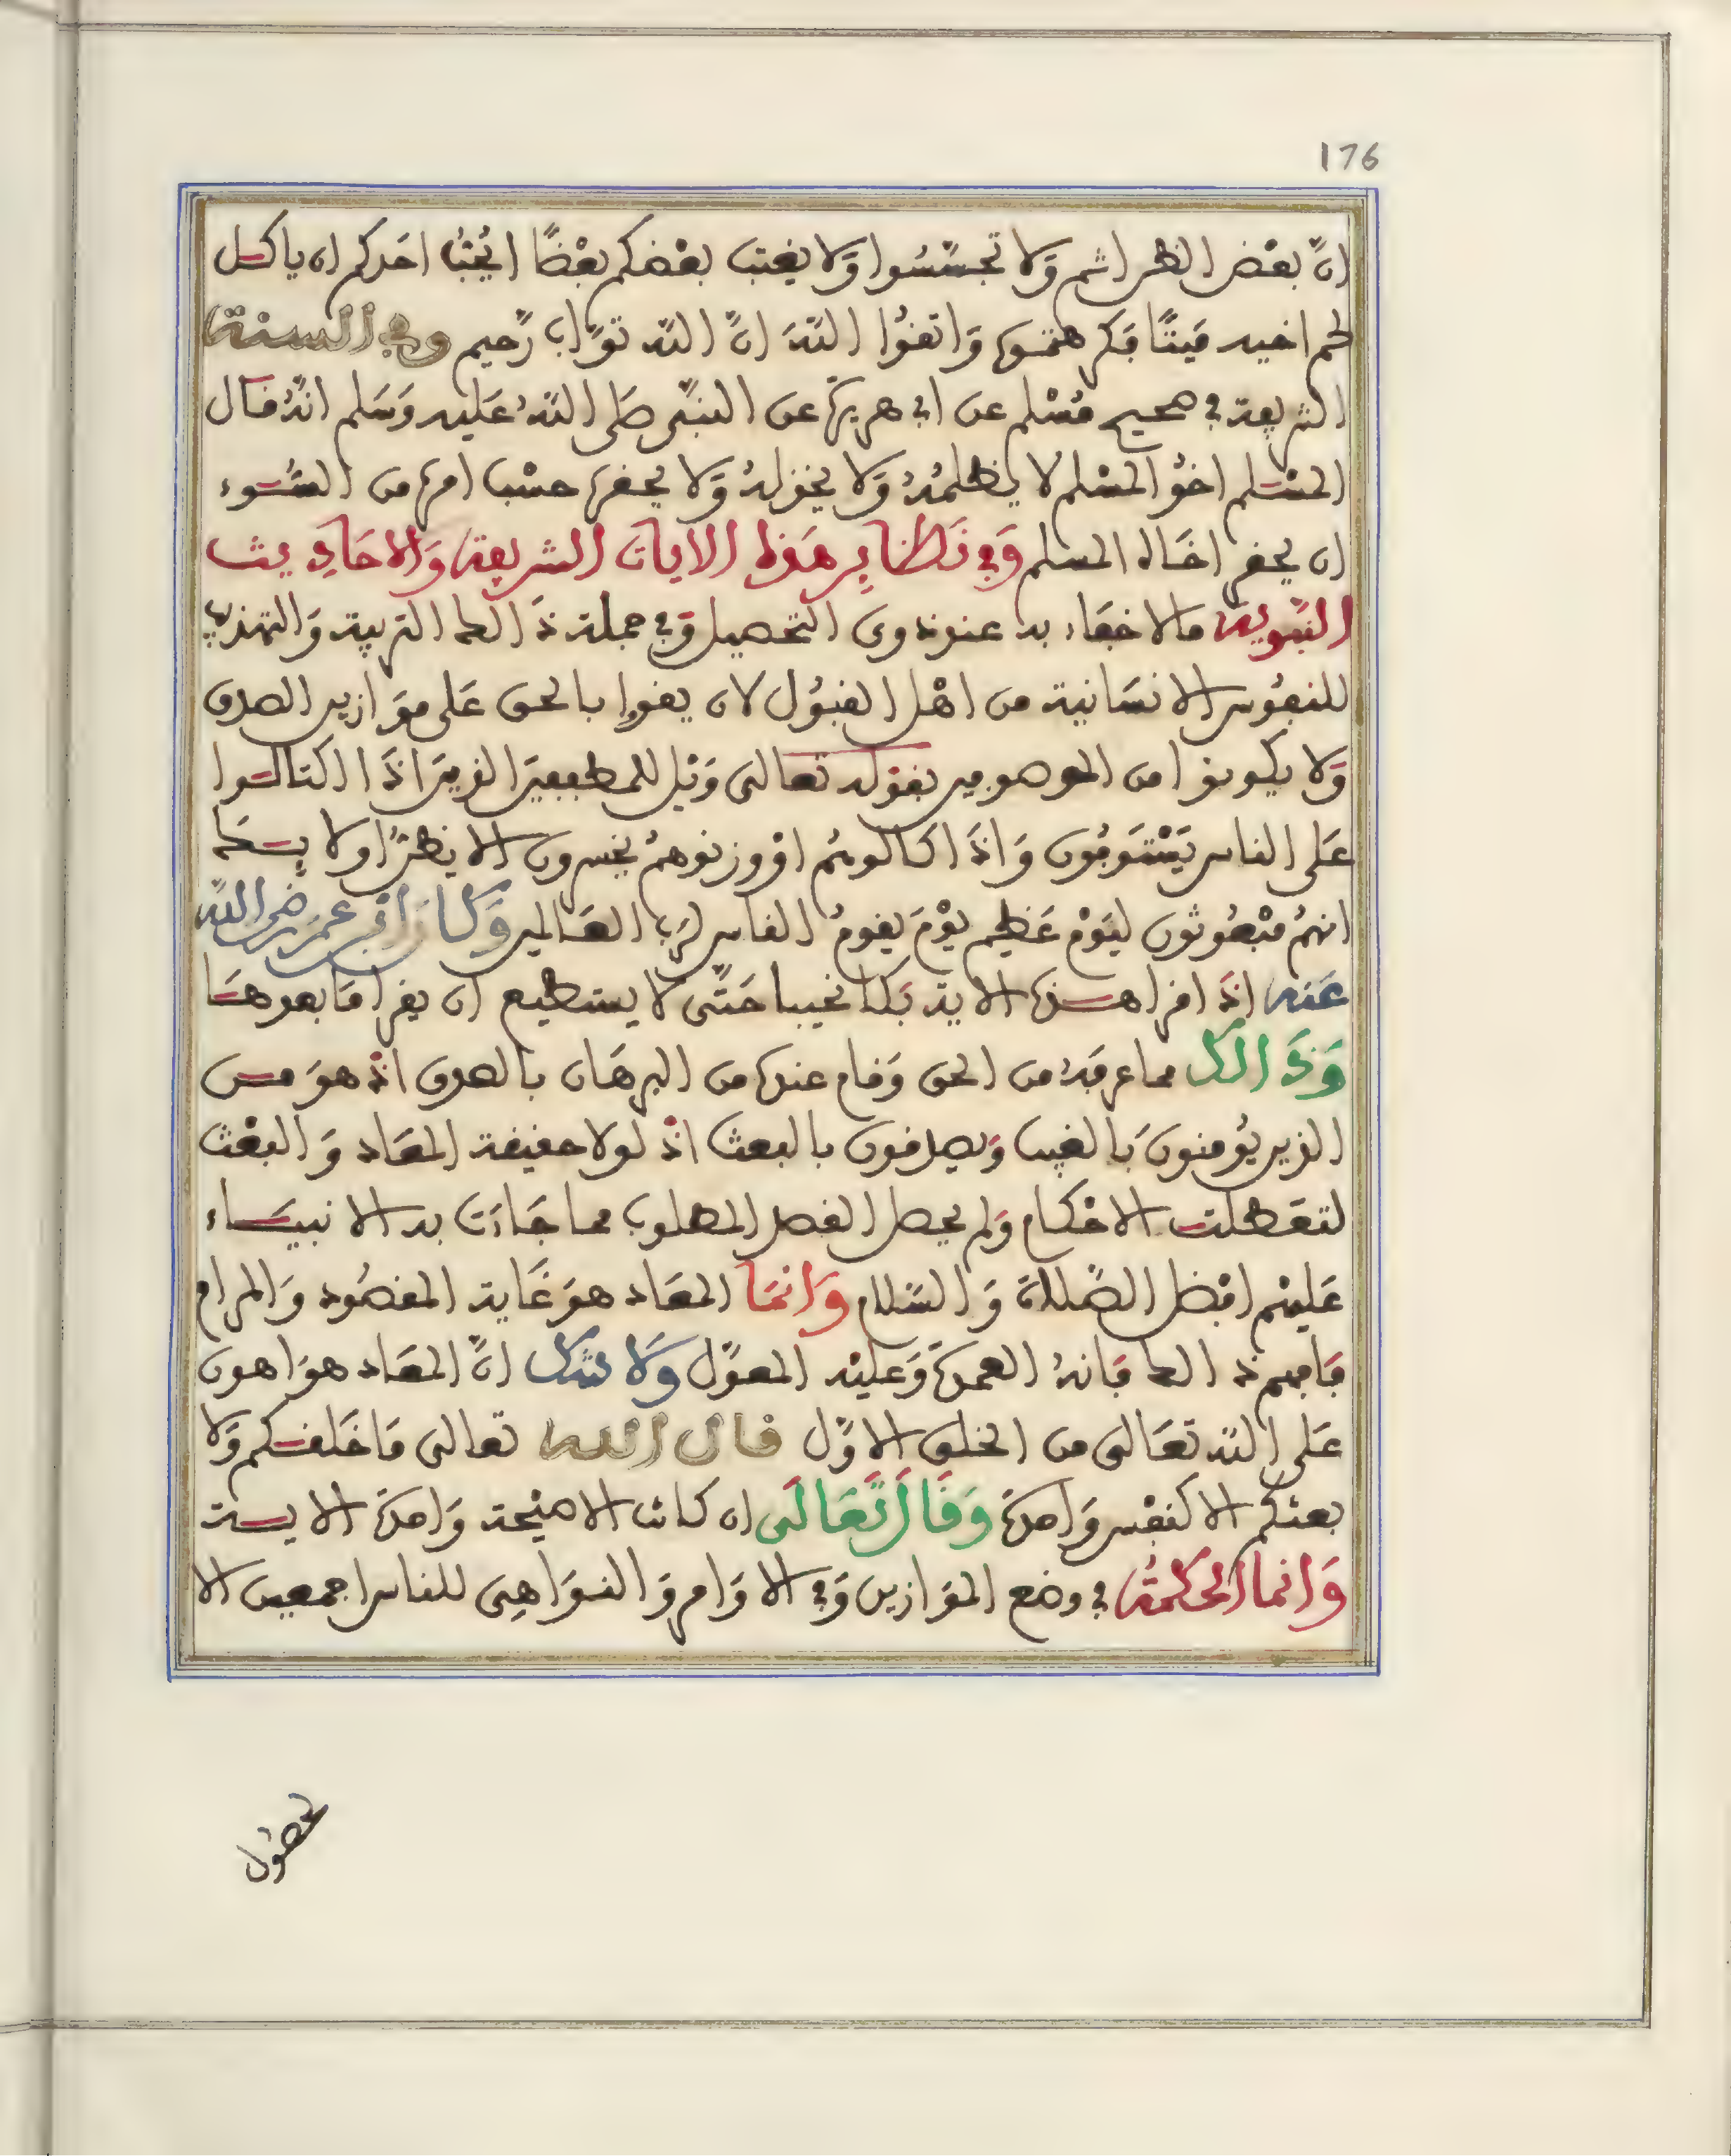 176
انّ بعض الظن اثم ولا تجسّسوا ولا يغتب بعضكم بعضًا ايُحبّ احدكم ان ياكل
لحم اخيه ميتًا فكرهتموه واتقوا اللّه انّ اللّه توّاب رّحيم وفي السنة
الشريفة في صحيح مسلم عن ابي هريرة عن النبيّ صلى اللّه عليه وسلم انه قال
المسلم اخو المسلم لا يظلمه ولا يخذله ولا يحقره حسب امرئ من السوء
ان يحقر اخاه المسلم وفي نظاير هذه الايات الشريفة والاحاديث
النبوية ما لا خفاء به عند ذوي التحصيل وفي جملة ذالك التربية والتهذيب
للنفوس الانسانية من اهل القبول لان يفوا بالحق على موازين الصدق
ولا يكونوا من الموصومين بقوله تعالى ويل للمطففين الذين اذا اكتالوا
على الناس يستوفون واذا كالوهم او وزنوهم يخسرون الا يظن اولائك
انهم مبعوثون ليوم عظيم يوم يقوم الناس لرب العالمين وكان ابن عمر رضي اللّه
عنه اذا قرا هذه الاية بكا نحيبا حتّى لا يستطيع ان يقرا ما بعدها
وذالك مما عرفه من الحق وقام عنده من البرهان بالصدق اذ هو من
الذين يؤمنون بالغيب ويصدقون بالبعث اذ لولا حقيقة المعاد والبعث
لتعطلت الاحكام ولم يحصل الفصل المطلوب مما جاءت به الانبياء
عليهم افضل الصّلاة والسّلام وانما المعاد هو غاية المقصود والمرام
فافهم ذالك فانه العمدة وعليه المعوّل ولا شك انّ المعاد هو اهون
على اللّه تعالى من الخلق الاوّل قال الله تعالى ما خلقكم ولا
بعثكم الا كنفس واحدة وقال تعالى ان كانت الا صيحة واحدة الاية
وانما الحكمة في وضع الموازين وفي الاوامر والنواهي للناس اجمعين الا
لحصول